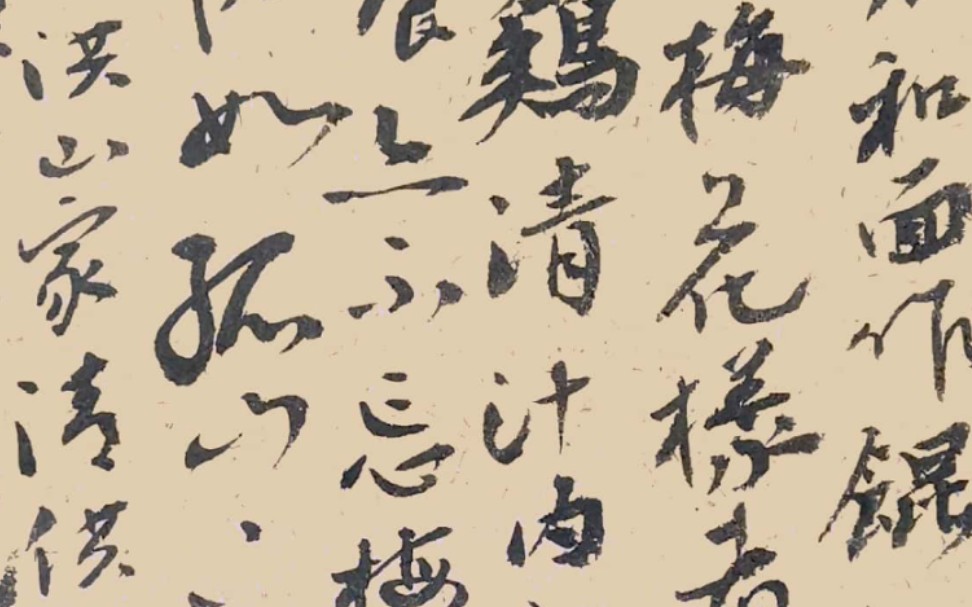 和面作餛
梅花樣者
鷄清汁内
食亦不忘梅
如孤山
洪山家清供